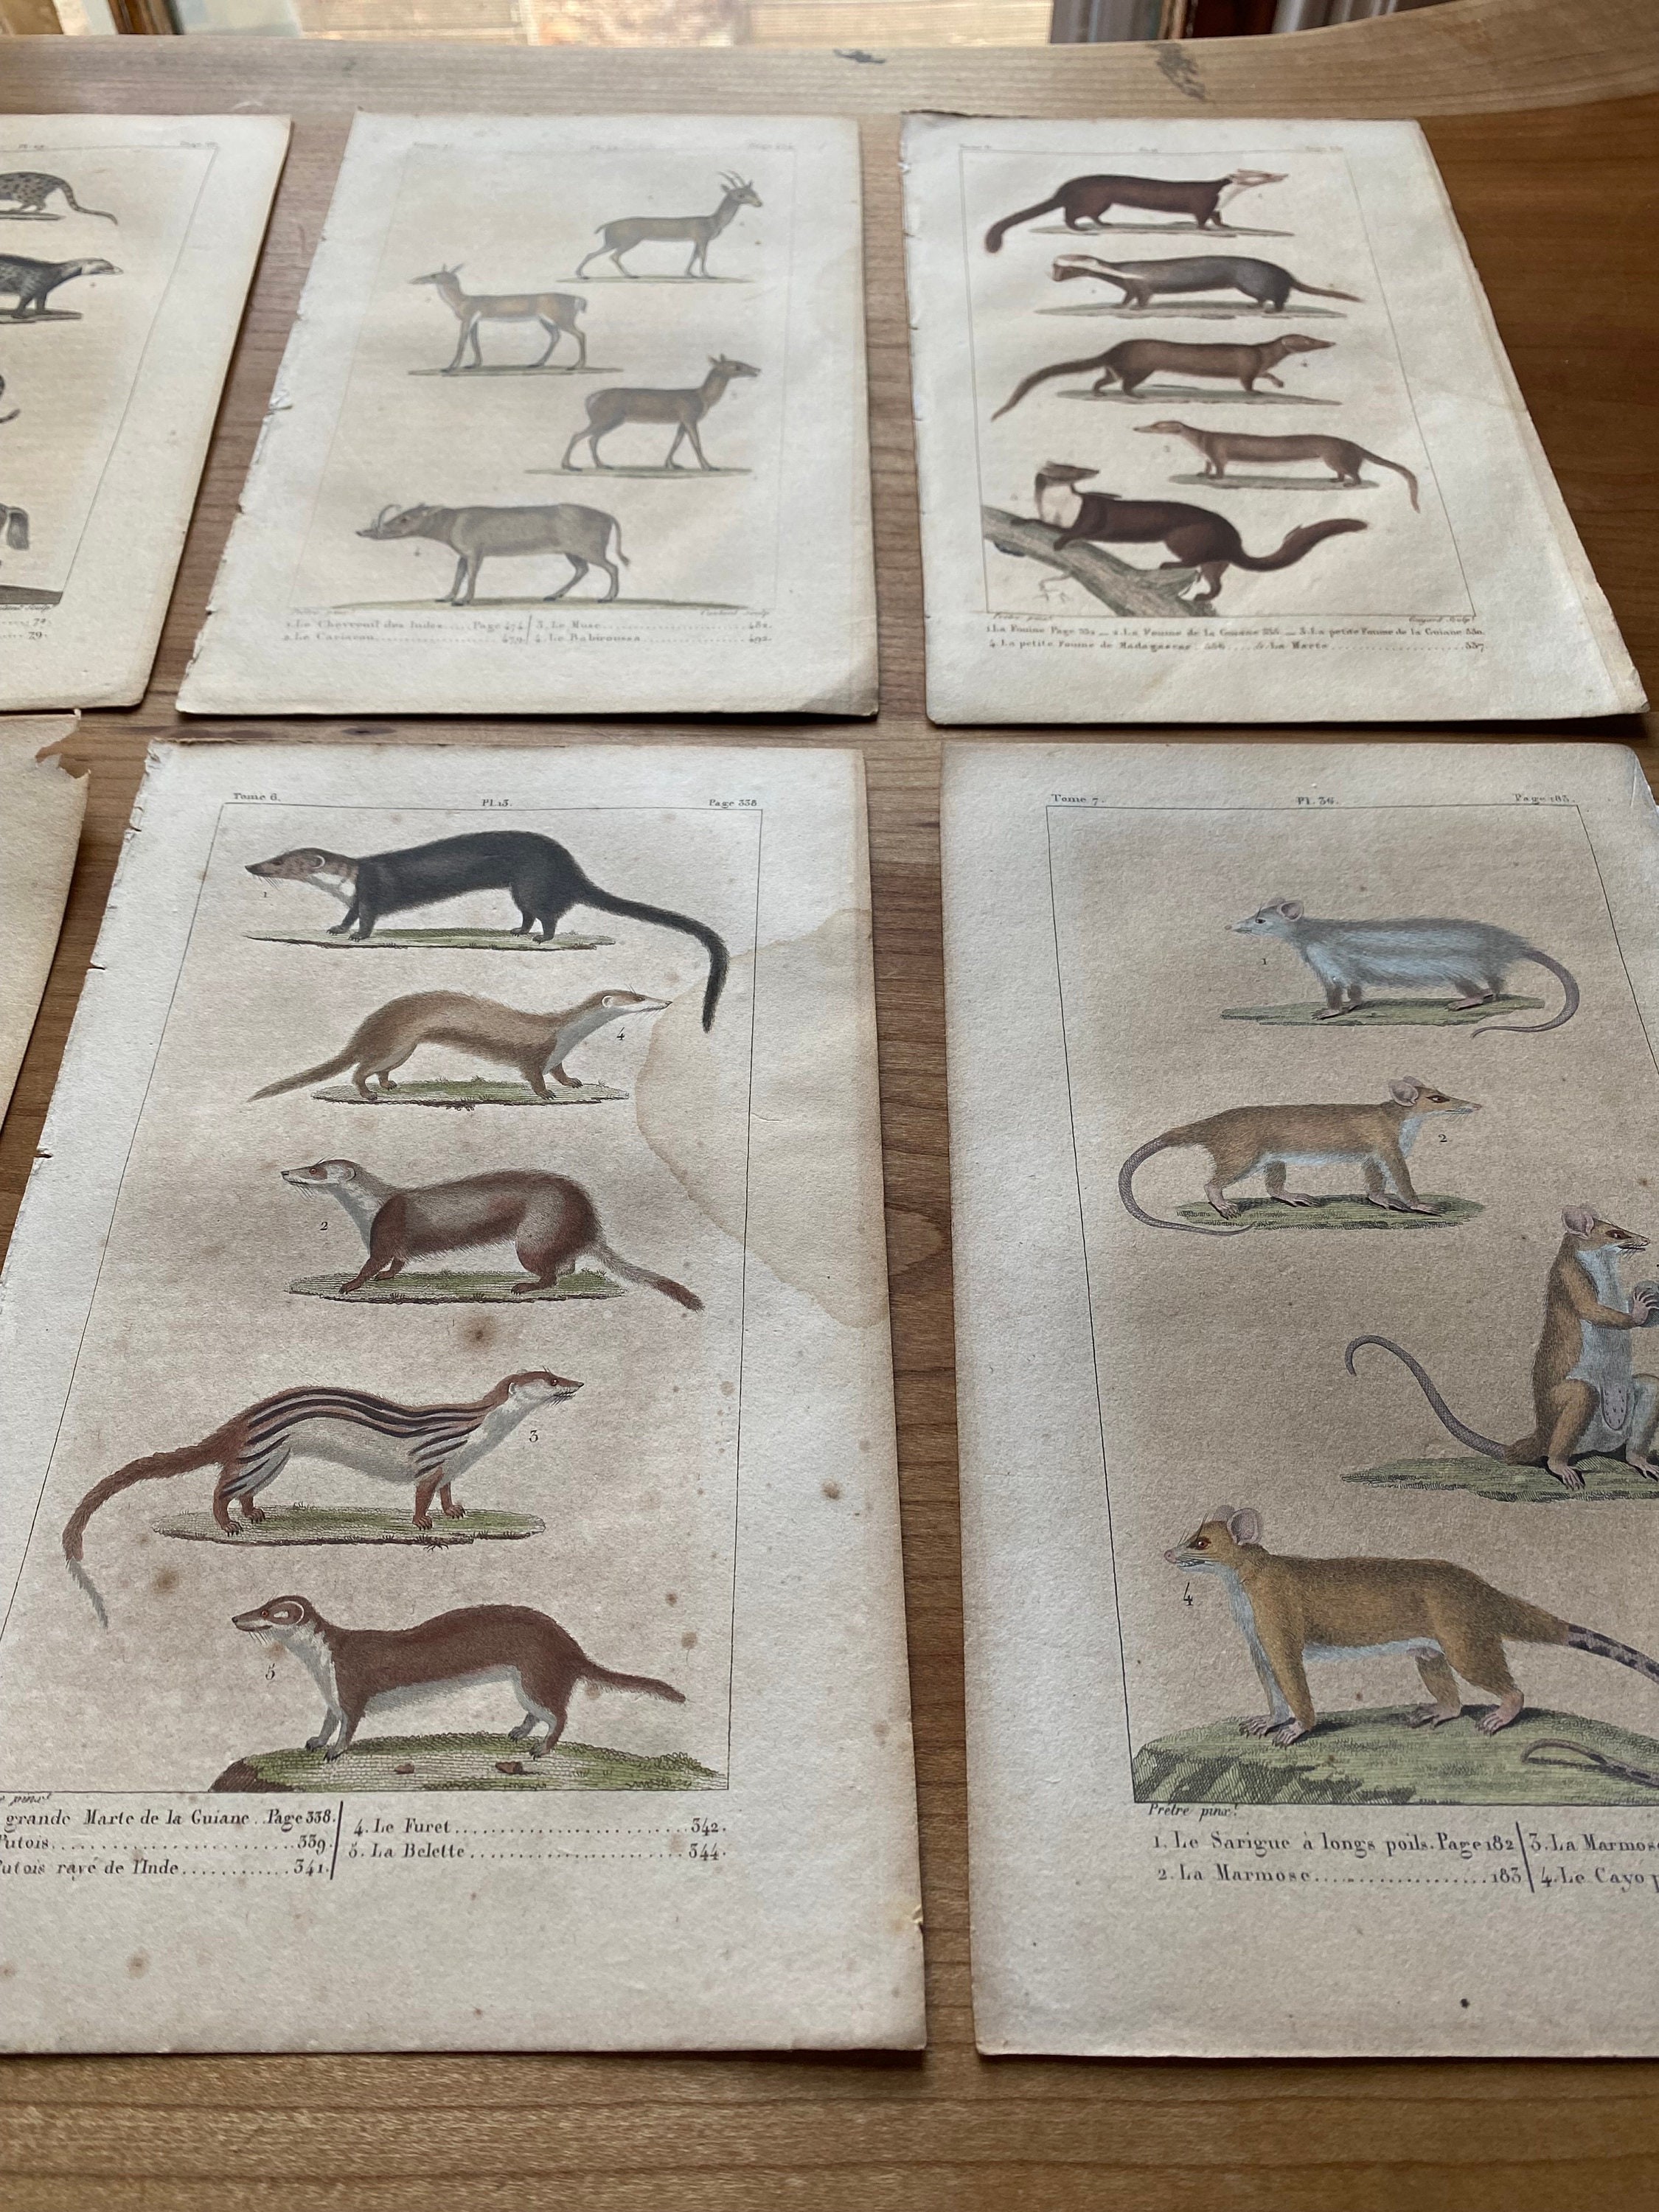 72
79.
1. Le Chevreuil des Indes.....Page 474
3. Le Musc..............482.
2. Le Cariacou..............479
4. Le Babiroussa..............492.
Prêtre pinx.t
1. La Fouine Page 352 _ 2. La Fouine de la Guiane 355 _ 3. La petite Fouine de la Guiane
4. La petite Fouine de Madagascar 336 .... 5. La Marte..............337
Tome 6.
Pl. 13.
Page 338
1
4
2
3
5
pinx.t
grande Marte de la Guiane..Page 338.
Putois..............339.
Putois rayé de l'Inde..........341.
4. Le Furet..............342.
5. La Belette..............344.
Tome 7.
Pl. 36.
Page 183.
1
2
4
Prêtre pinx.t
1. Le Sarigue à longs poils. Page 182
2. La Marmose..............183
3. La Marmose
4. Le Cayo